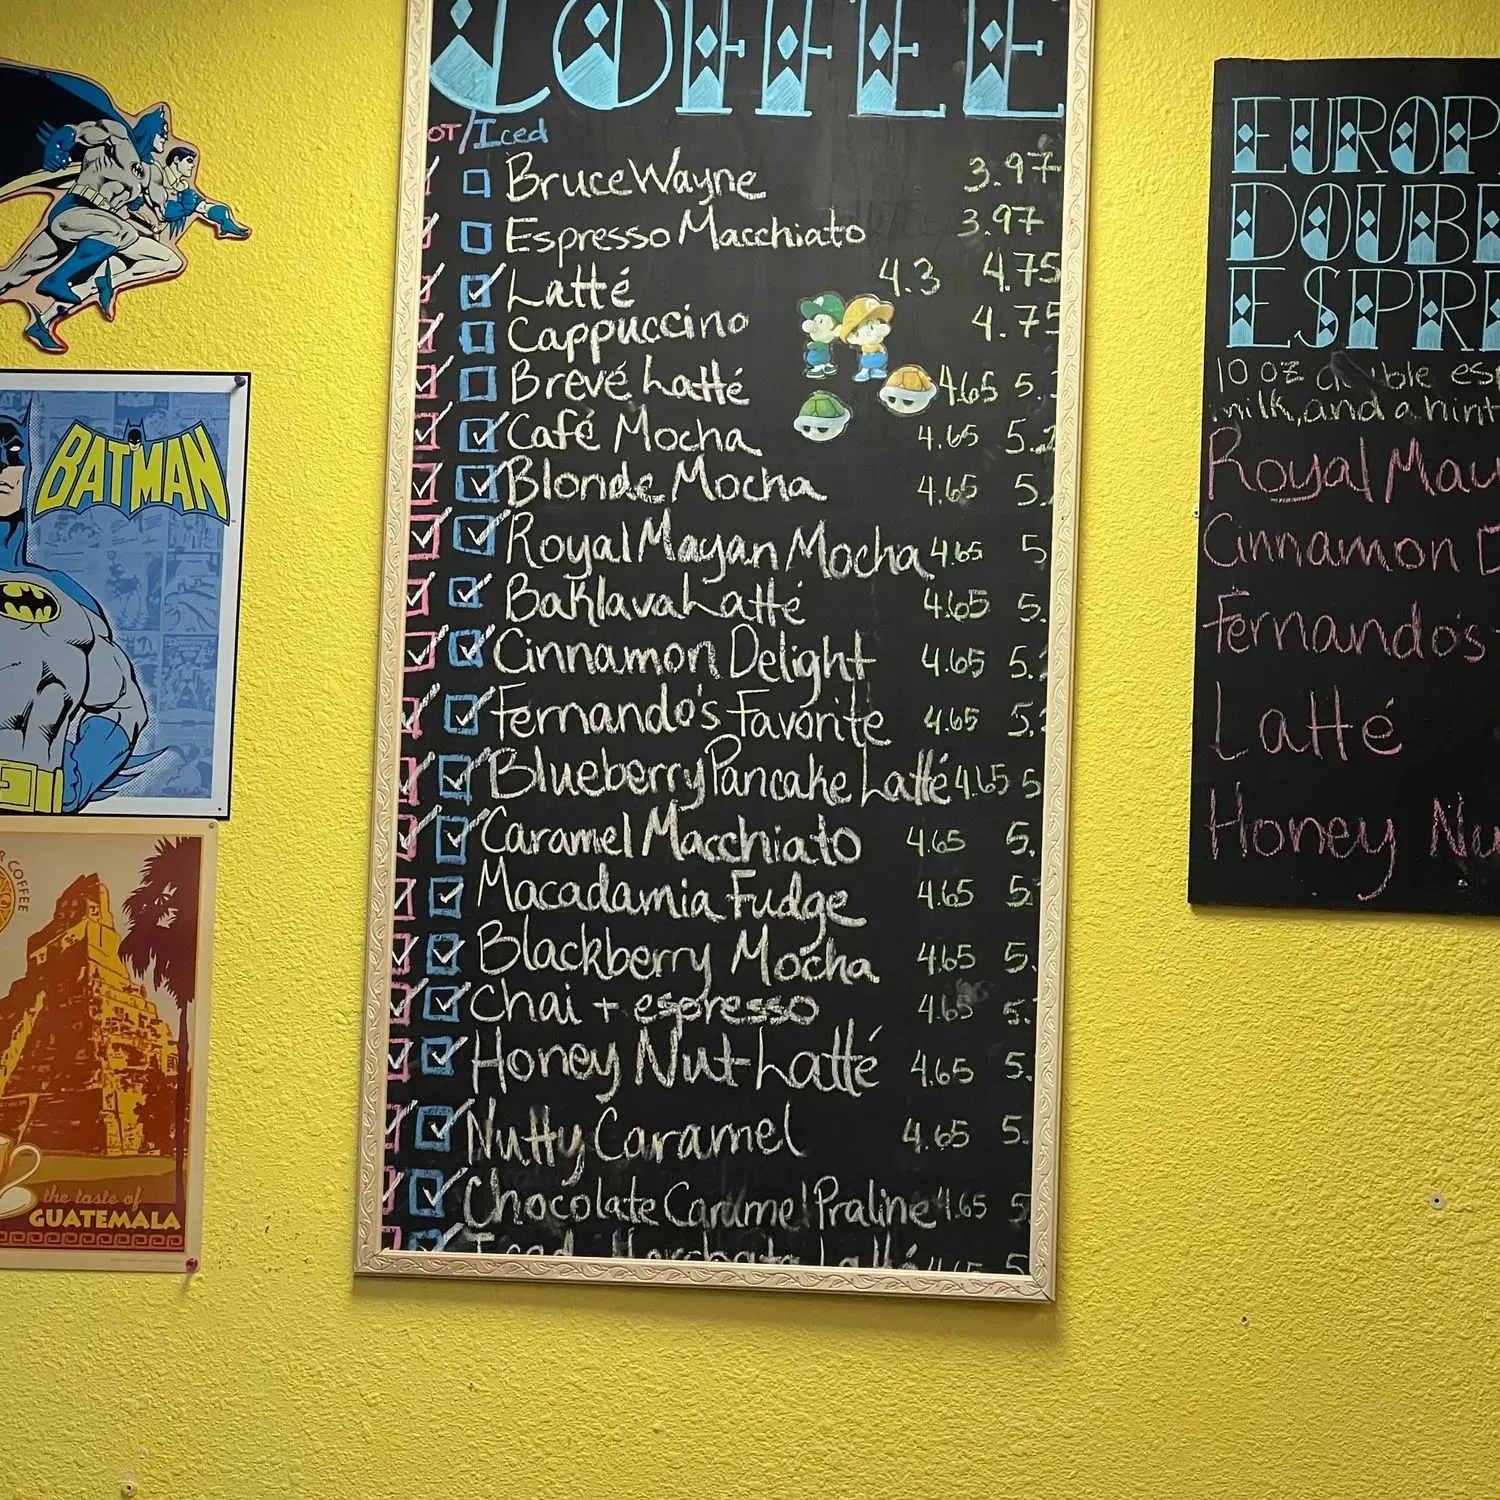 COFFEE
OT/Iced
Bruce Wayne 3.97
Espresso Macchiato 3.97
Latté 4.3 4.75
Cappuccino 4.75
Brevé Latté 4.65 5.
Café Mocha 4.65 5.2
Blonde Mocha 4.65 5.
Royal Mayan Mocha 4.65 5
Baklava Latté 4.65 5.
Cinnamon Delight 4.65 5.
Fernando's Favorite 4.65 5.
Blueberry Pancake Latté 4.65 5
Caramel Macchiato 4.65 5.
Macadamia Fudge 4.65 5
Blackberry Mocha 4.65 5.
Chai + espresso 4.65 5.
Honey Nut Latté 4.65 5.
Nutty Caramel 4.65 5.
Chocolate Caramel Praline 4.65 5
Iced Horchata Latté 5
EUROP
DOUB
ESPR
10 oz es
milk, and a hint
Royal May
Cinnamon D
Fernando's
Latté
Honey Nu
BATMAN
COFFEE
the taste of
GUATEMALA